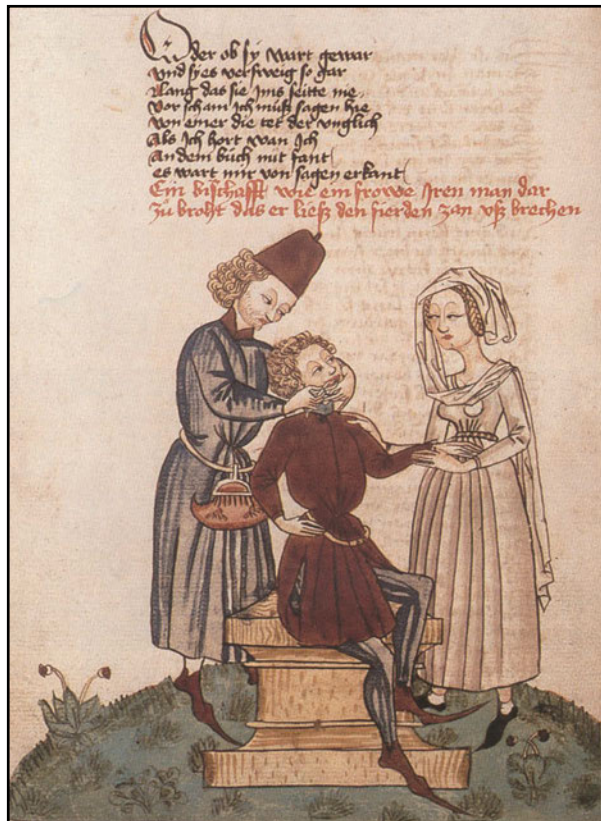 Oder ob sy wart gewar
vnd sy es versweig so gar
das sie Ims seitte nie
vor scham Ich muß sagen hie
von einer die tet der vnglich
Als Ich hort wan Ich
An dem buch nit fant
es wart mir von sagen erkant
Ein bischafft wie ein frowe Iren man dar
Zů broht das er ließ den fierden zan vß brechen